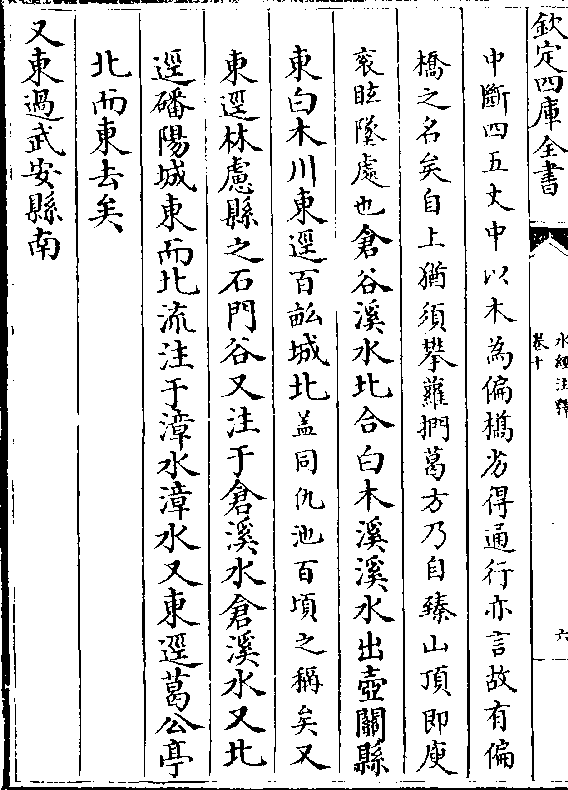 欽定四庫全書
水經注釋
卷十
六
中斷四五丈中以木為偏橋劣得通行亦言故有偏
橋之名矣自上猶須攀蘿捫葛方乃自臻山頂即庾
袞眩墜處也倉谷溪水北合白木溪溪水出壺關縣
東白木川東逕百畝城北蓋同仇池百頃之稱矣又
東逕林慮縣之石門谷又注于倉溪水倉溪水又北
逕磻陽城東而北流注于漳水漳水又東逕葛公亭
北而東去矣
又東過武安縣南